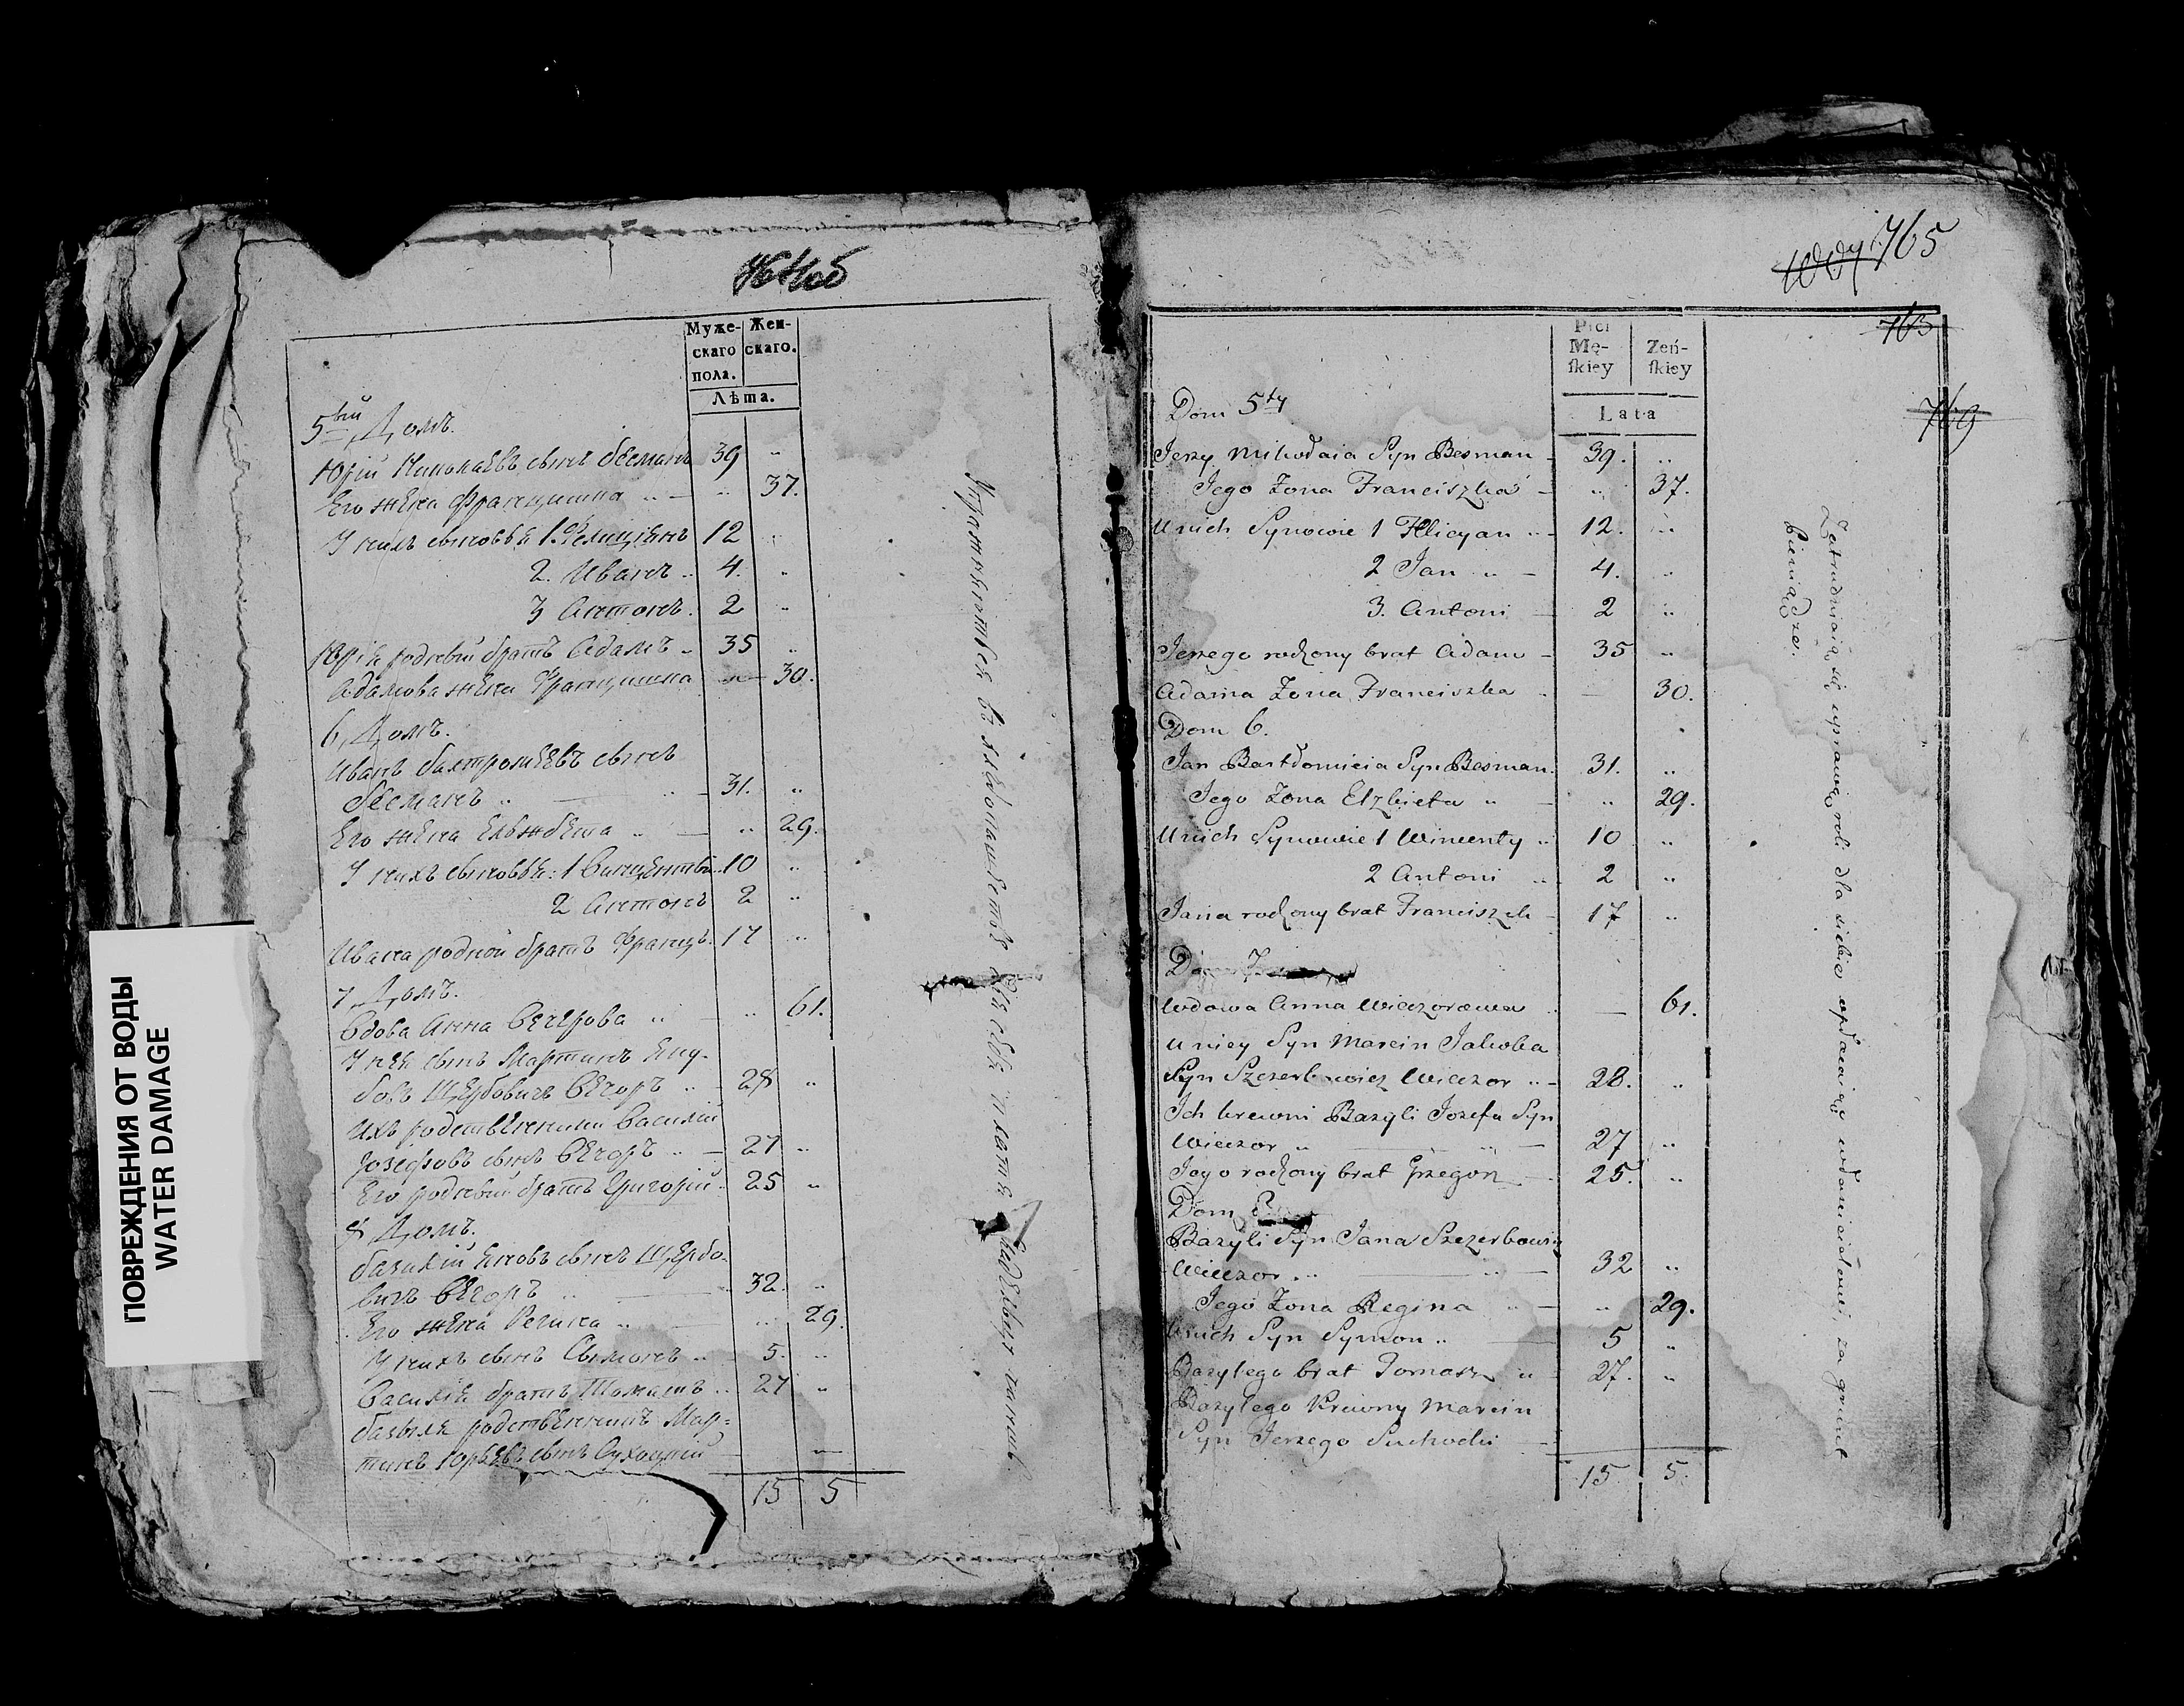 ПОВРЕЖДЕНИЯ ОТ ВОДЫ
WATER DAMAGE
Муже-
скаго
пола.
Жен-
скаго.
Лѣта.
5ый Домъ.
Юрій Николаевъ сынъ Бесманъ 39 "
Его жена Францишка " — " 37.
У нихъ сыновья 1. Фелиціянъ 12 "
2. Иванъ " 4. "
3 Антонъ. 2 "
Юрія родный братъ Адамъ " 35 "
Адамова жена Францишка — 30.
6, Домъ.
Иванъ Балтромѣевъ сынъ
Бесманъ " — " 31. "
Его жена Ельжбета " — " 29.
У нихъ сыновья: 1 Винцентый 10 "
2 Антонъ 2 "
Ивана родной братъ Францъ. 17 "
7 Домъ.
Вдова Анна Вечерова " — " 61.
У нея сынъ Мартинъ Яку-
бовъ Щербовичъ Вечоръ " 28 "
Ихъ родственники Василій
Іозефовъ сынъ Вечоръ " — 27 "
Его родный братъ Григорій. 25 "
8 Домъ.
Базилій Яновъ сынъ Щербо-
вичъ Вечоръ " — 32. "
Его жена Регина " — " 29.
У нихъ сынъ Сымонъ " 5. "
Василія братъ Томашъ " 27 "
Базыля родственникъ Мар-
тинъ Юрьевъ сынъ Сухоцкій — —
15 5
765
763
769
Płci
Mę-
ſkiey
Zeń-
ſkiey
Lata
Dom 5ty
Jerzy Mikołaia Syn Besman 39. "
Jego Zona Franciszka — " 37.
U nich Synowie 1 Felicyan " 12. "
2 Jan " — 4. "
3. Antoni — 2 "
Jerzego rodzony brat Adam — 35 "
Adama Zona Franciszka — 30.
Dom 6.
Jan Bartłomieia Syn Besman. 31. "
Jego Zona Elzbieta " — " 29.
U nich Synowie 1 Wincenty " 10 "
2 Antoni " 2 "
Jana rodzony brat Franciszek — 17 "
Dom 7
Wdowa Anna Wieczorowa — 61.
U niey Syn Marcin Jakoba
Syn Szczerbowicz Wieczor " — 28. "
Ich krewni Bazyli Jozefa Syn
Wieczor " — " — 27 "
Jego rodzony brat Grzegorz — 25. "
Dom 8
Bazyli Syn Jana Szczerbowicz
Wieczor " — " — 32 "
Jego Zona Regina " — " 29.
U nich Syn Symon " — 5 "
Bazylego brat Tomasz " 27. "
Bazylego Krewny Marcin
Syn Jerzego Suchocki —
15 5.
Zatrudniaią się uprawą roli dla siebie opłacaiąc właścicielowi, za grunt
pieniądze.